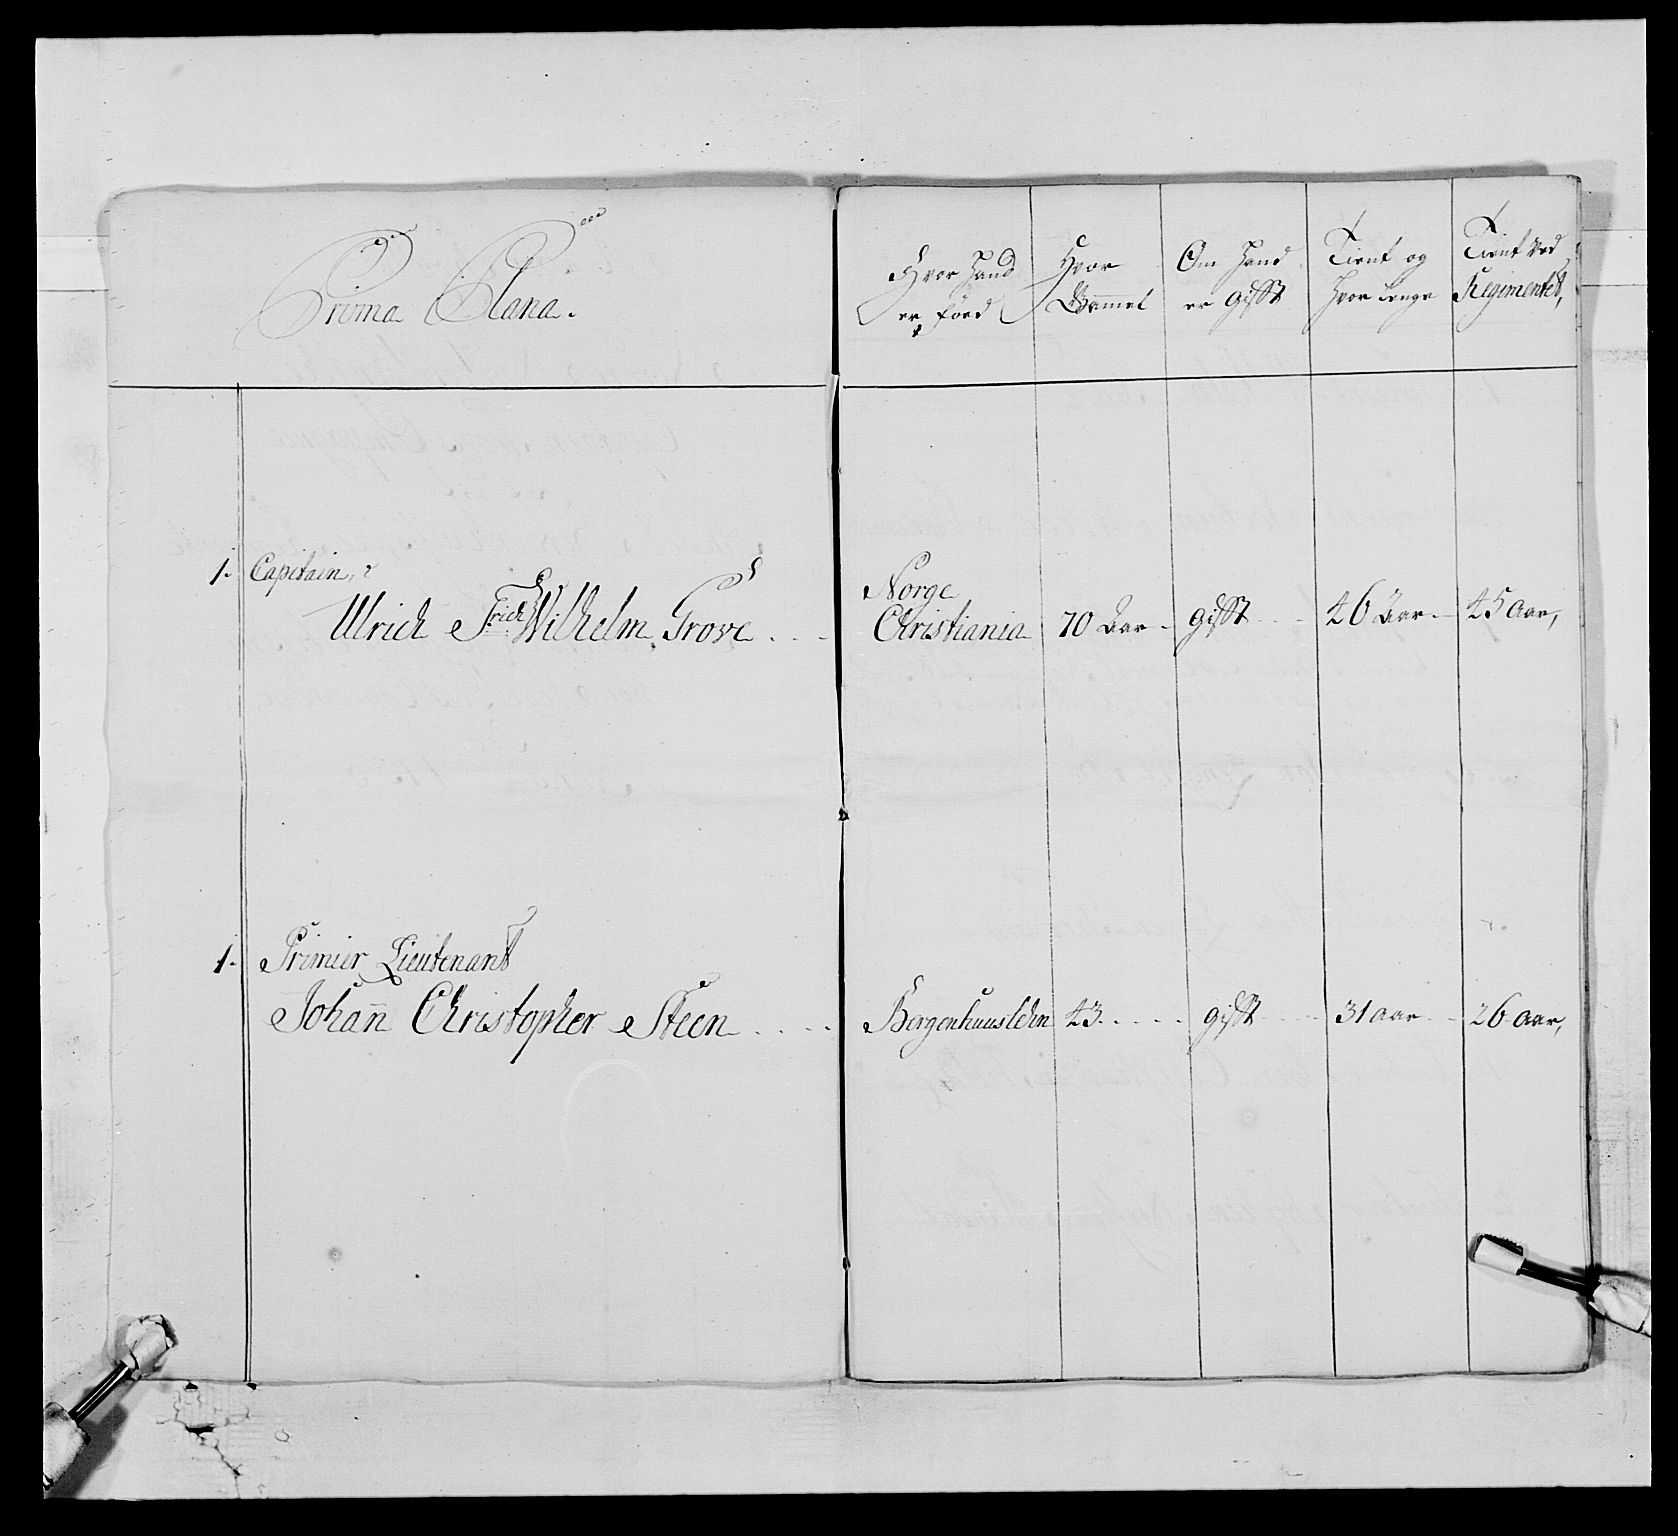 Prima Plana.
Hvor hand
er föed
Hvor
Gammel
Om hand
er gifft
Tient og
hvor lenge
Tient ved
Regimentet,
1. Capitain,
Ulrich Fridr: Wilhelm Grove . . .
Norge
Christiania
70 Aar
gifft
46 Aar
45 Aar,
1. Primier Lieutenant
Johan̄ Christopher Steen . . . .
Bergenhuuslehn
43. . . . .
gifft
31 Aar
26 Aar,